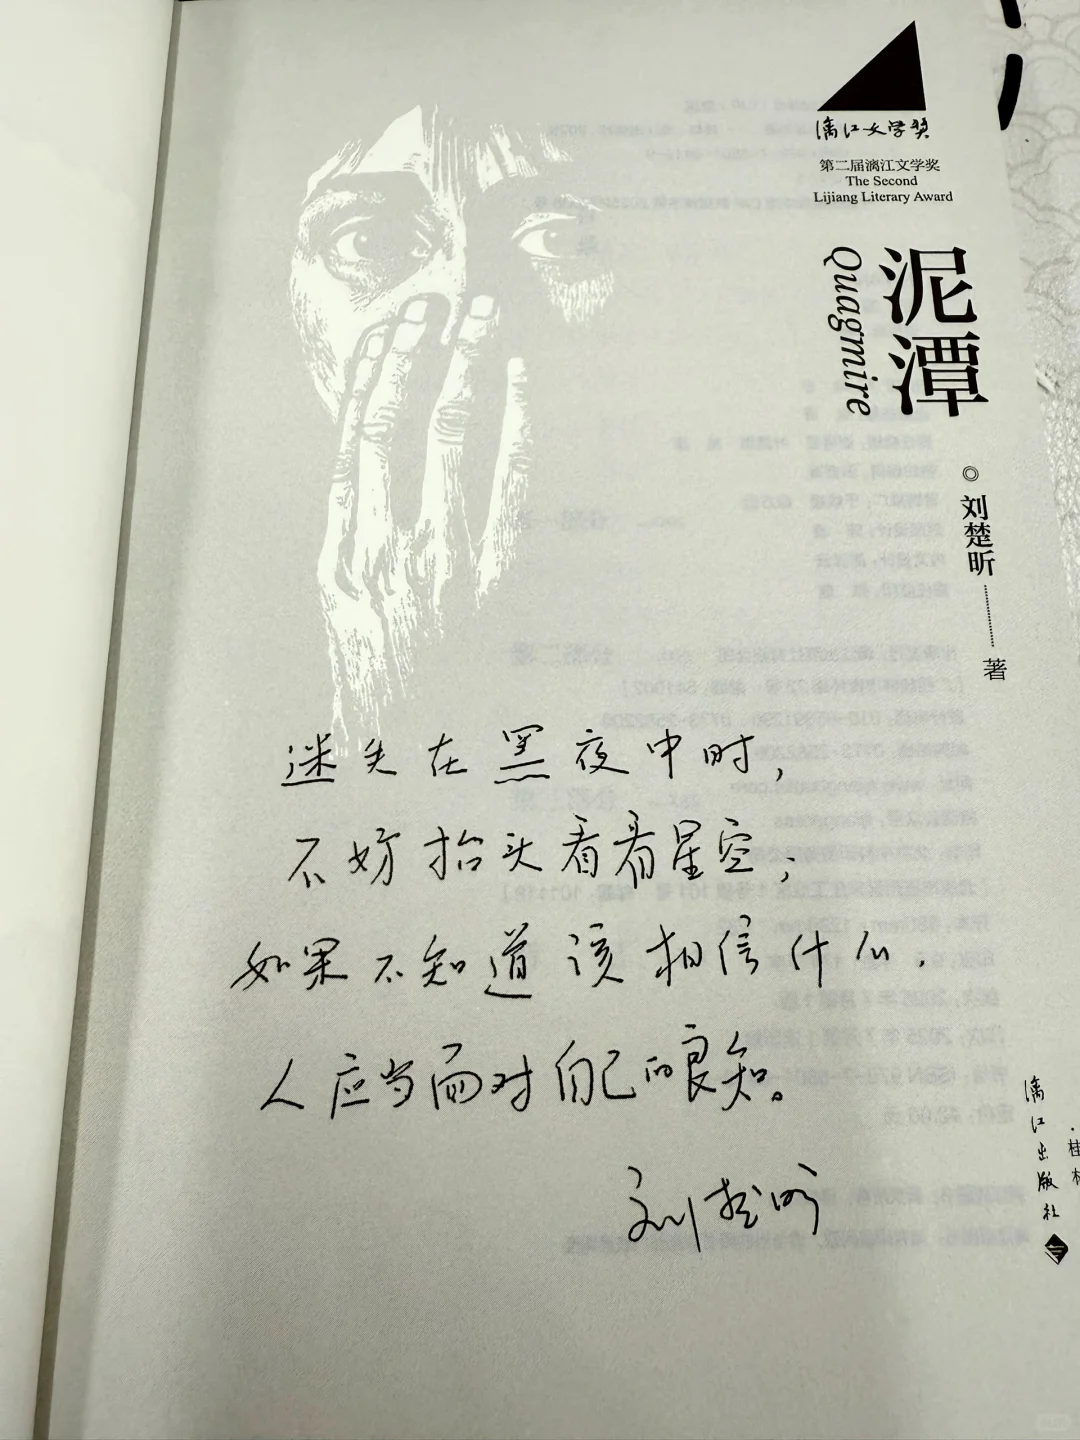 漓江文学奖
第二届漓江文学奖
The Second
Lijiang Literary Award
泥潭
Quagmire
刘楚昕
著
迷失在黑夜中时，
不妨抬头看看星空；
如果不知道该相信什么，
人应当面对自己的良知。
刘楚昕
漓江出版社
桂林